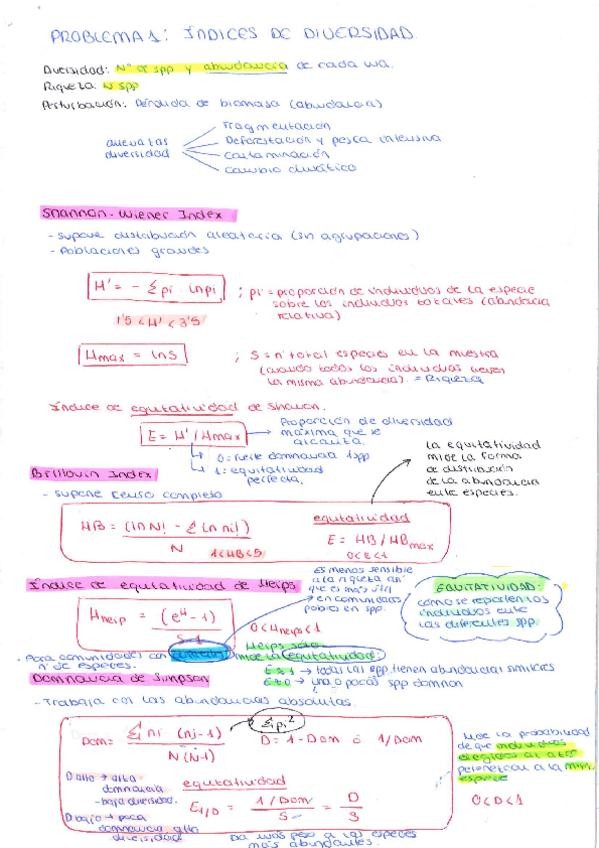 PROBLEMA 1: ÍNDICES DE DIVERSIDAD
Diversidad: Nº de spp y abundancia de cada una.
Riqueza: N spp
Perturbación: Pérdida de biomasa (abundancia)
Fragmentación
Deforestación y pesca intensiva
diversidad
Contaminación
Cambio climático
Shannon-Wiener Index
- supone distribución aleatoria (sin agrupaciones)
- Poblaciones grandes
H' = - Σ pi · ln pi ; pi = proporción de individuos de la especie
sobre los individuos totales (abundancia
relativa)
1'5 < H' < 3'5
Hmax = ln S ; S = nº total especies en la muestra
(cuando todos los individuos tienen
la misma abundancia). = Riqueza
Índice de equitatividad de Shannon.
E = H' / Hmax
Proporción de diversidad
máxima que se
alcanza.
0: fuerte dominancia 1 spp
1: equitatividad
perfecta.
la equitatividad
mide la forma
de distribución
de la abundancia
entre especies.
Brillouin Index
- supone censo completo
HB = (ln N! - Σ ln ni!) / N
1 < HB < 5
equitatividad
E = HB / HBmax
0 < E < 1
Índice de equitatividad de Heips
Hheip = (e^H - 1) / S-1
0 < Hheips < 1
Es menos sensible
a la riqueza
que es más útil
en comunidades
pobres en spp.
EQUITATIVIDAD:
cómo se reparten los
individuos entre
las diferentes spp.
· Para comunidades con
nº de especies.
Heips solo
mide la equitatividad:
E ≈ 1 → todas las spp tienen abundancias similares
E ≈ 0 → una o pocas spp dominan
Dominancia de Simpson
- Trabaja con las abundancias absolutas.
Dom = Σ ni (ni-1) / N (N-1)
Σ pi²
D = 1 - Dom ó 1/Dom
Mide la probabilidad
de que individuos
elegidos al azar
pertenezcan a la misma
especie
0 < D < 1
D alto → alta
dominancia
- baja diversidad.
D bajo → poca
dominancia alta
diversidad
equitatividad
E1/D = (1/Dom) / S = D / S
Da más peso a las especies
más abundantes.